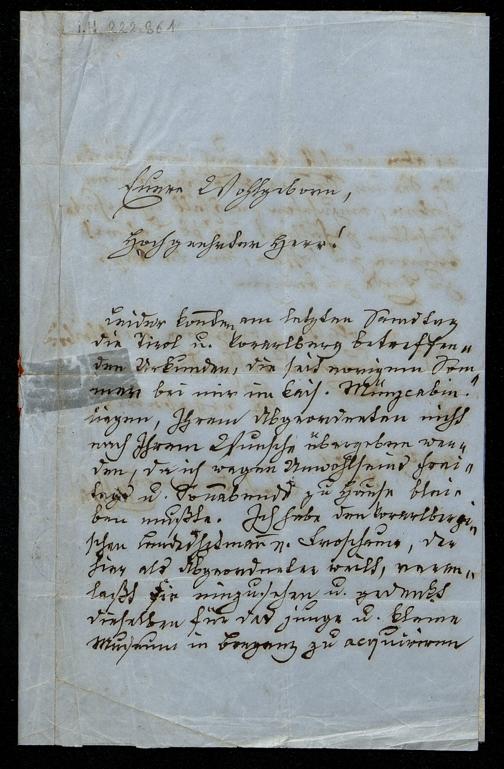 I.N. 222.861
Euere Wohlgeborn,
Hochgeehrter Herr!
Leider konnten am letzten Samstag
die Tirol u. Vorarlberg betreffen-
den Urkunden, die seit vorigem Som-
mer bei mir im kais. Münzcabin.
liegen, Ihrem Abgeordneten nicht
nach Ihrem Wunsche übergeben wer-
den, da ich wegen Unwohlseins frei-
tags u. Sonnabends zu Hause blei-
ben mußte. Ich habe den vorarlbergi-
schen Landeshptmann v. Froschauer, der
hier als Abgeordneter weilt, veran-
laßt sie einzusehen u. gedenkt
dieselben für das junge u. kleine
Museum in Bregenz zu acquiriren